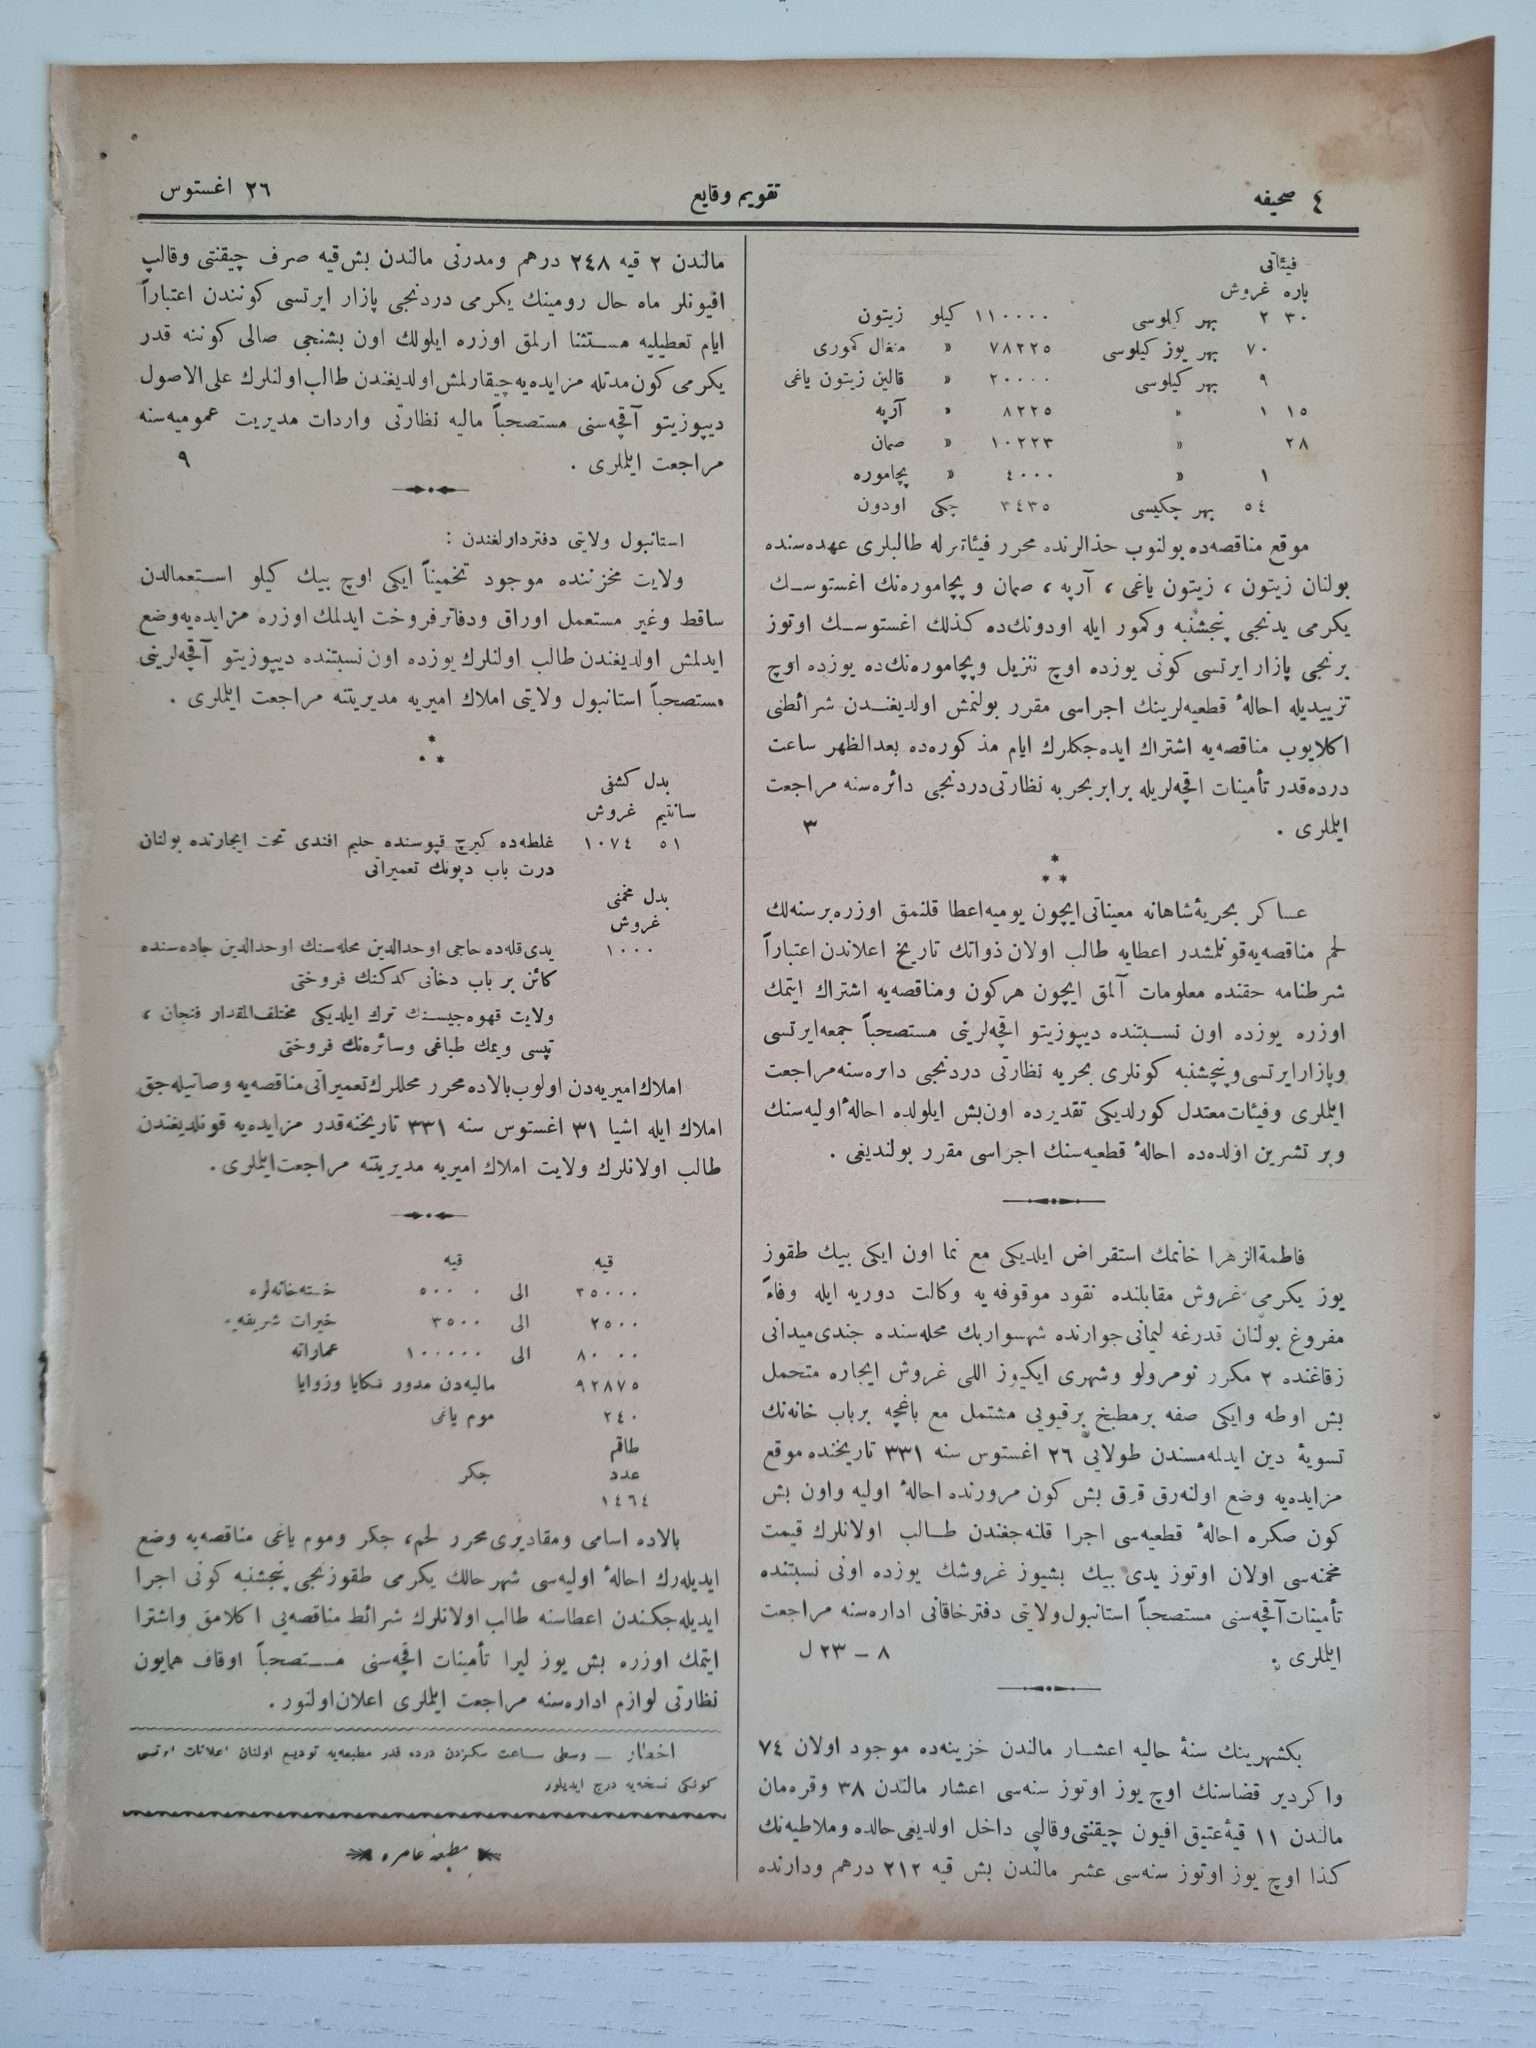 ٤ صحیفه
تقویم وقایع
٢٦ اغستوس
فیئاتی
پاره غروش
٣٠ ٢ بهر کیلوسی ١١٠٠٠٠ کیلو زیتون
٧٠ بهر یوز کیلوسی ٧٨٢٢٥ « منغال کموری
٩ بهر کیلوسی ٢٠٠٠٠ « قالین زیتون یاغی
١٥ ١ « ٨٢٢٥ « آرپه
٢٨ « ١٠٢٢٣ « صمان
١ « ٤٠٠٠ « پچاموره
٥٤ بهر چکیسی ٣٤٣٥ چکی اودون
موقع مناقصه‌ده بولنوب حذالرنده محرر فیئاتله طالبلری عهده‌سنده
بولنان زیتون ، زیتون یاغی ، آرپه ، صمان و پچاموره‌نك اغستوسـك
یکرمی یدنجی پنجشنبه وکمور ایله اودونك‌ده کذلك اغستوسـك اوتوز
برنجی پازار ایرتسی کونی یوزده اوچ تنزیل وپچاموره‌نك‌ده یوزده اوچ
تزییدیله احالهٔ قطعیه‌لرینك اجراسی مقرر بولنمش اولدیغندن شرائطنی
اکلایوب مناقصه‌یه اشتراك ایده‌جکلرك ایام مذکوره‌ده بعدالظهر ساعت
درده‌قدر تأمینات اقچه‌لریله برابر بحریه نظارتی دردنجی دائره‌سنه مراجعت
ایلملری . ٣
* * *
عساکر بحریهٔ شاهانه معیناتی ایچون یومیه اعطا قلنمق اوزره برسنه‌لك
لحم مناقصه‌یه قونلمشدر اعطایه طالب اولان ذواتك تاریخ اعلاندن اعتباراً
شرطنامه حقنده معلومات آلمق ایچون هرکون ومناقصه‌یه اشتراك ایتمك
اوزره یوزده اون نسـبتنده دیپوزیتو اقچه‌لرینی مستصحباً جمعه‌ایرتسی
وپازارایرتسی وپنچشنبه کونلری بحریه نظارتی دردنجی دائره‌سنه مراجعت
ایلملری وفیئات معتدل کورلدیکی تقدیرده اون‌بش ایلولده احالهٔ اولیه‌سنك
وبر تشرین اولده‌ده احالهٔ قطعیه‌سنك اجراسی مقرر بولندیغی .
فاطمة‌الزهرا خانمك استقراض ایلدیکی مع نما اون ایکی بیك طقوز
یوز یکرمی غروش مقابلنده نقود موقوفه‌یه وکالت دوریه ایله وفاءً
مفروغ بولنان قدرغه لیمانی جوارنده شهسواربك محله‌سنده جندی میدانی
زقاغنده ٢ مکرر نومرولو وشهری ایکیوز اللی غروش ایجاره متحمل
بش اوطه وایکی صفه برمطبخ برقیویی مشتمل مع باغچه برباب خانه‌نك
تسویهٔ دین ایدلمه‌مسندن طولایی ٢٦ اغستوس سنه ٣٣١ تاریخنده موقع
مزایده‌یه وضع اولنه‌رق قرق بش کون مرورنده احالهٔ اولیه واون بش
کون صکره احالهٔ قطعیه‌سی اجرا قلنه‌جغندن طـالب اولانلرك قیمت
مخمنه‌سی اولان اوتوز یدی بیك بشیوز غروشك یوزده اونی نسبتنده
تأمینات‌آقچه‌سنی مستصحباً استانبول‌ولایتی دفترخاقانی اداره‌سنه مراجعت
ایلملری . ٨ ـ ٢٣ ل
بکشهرینك سنهٔ حالیه اعشـار مالندن خزینه‌ده موجود اولان ٧٤
واکردیر قضاسنك اوچ یوز اوتوز سنه‌سی اعشار مالندن ٣٨ وقره‌مان
مالندن ١١ قیهٔ عتیق افیون چیقنتی‌وقالپی داخل اولدیغی حالده وملاطیه‌نك
کذا اوچ یوز اوتوز سنه‌سی عشر مالندن بش قیه ٢١٢ درهم ودارنده
مالندن ٢ قیه ٢٤٨ درهم ومدرنی مالندن بش‌قیه صرف چیقنتی وقالپ
افیونلر ماه حال رومینك یکرمی دردنجی پازار ایرتسی کونندن اعتباراً
ایام تعطیلیه مسـتثنا اولمق اوزره ایلولك اون بشنجی صالی کوننه قدر
یکرمی کون مدتله مزایده‌یه چیقارلمش اولدیغندن طالب اولنلرك علی‌الاصول
دیپوزیتو آقچه‌سنی مستصحباً مالیه نظارتی واردات مدیریت عمومیه‌سنه
مراجعت ایلملری . ٩
استانبول ولایتی دفتردارلغندن :
ولایت مخزننده موجود تخمیناً ایکی اوچ بیك کیلو اسـتعمالدن
ساقط وغیر مستعمل اوراق ودفاتر فروخت ایدلمك اوزره مزایده‌یه‌وضع
ایدلمش اولدیغندن طالب اولنلرك یوزده اون نسبتنده دیپوزیتو آقچه‌لرینی
مستصحباً استانبول ولایتی املاك امیریه مدیریتنه مراجعت ایلملری .
* * *
بدل کشفی
سانتیم غروش
٥١ ١٠٧٤ غلطه‌ده کیرچ قپوسنده حلیم افندی تحت ایجارنده بولنان
درت باب دپونك تعمیراتی
بدل مخمنی
غروش
١٠٠٠ یدی قله‌ده حاجی اوحدالدین محله‌سنك اوحدالدین جاده‌سنده
کائن بر باب دخانی کدکنك فروختی
ولایت قهوه‌جیسنك ترك ایلدیکی مختلف‌المقدار فنجان ،
تپسی ویمك طباغی وسائره‌نك فروختی
املاك امیریه‌دن اولوب بالاده محرر محللرك تعمیراتی مناقصه‌یه وصاتیله‌جق
املاك ایله اشیا ٣١ اغستوس سنه ٣٣١ تاریخنه‌قدر مزایده‌یه قونلدیغندن
طالب اولانلرك ولایت املاك امیریه مدیریتنه مراجعت ایلملری .
قیه قیه
٣٥٠٠٠ الی ٥٠٠٠٠ خسته‌خانه‌لره
٢٥٠٠ الی ٣٥٠٠ خیرات شریفه‌یه
٨٠٠٠٠ الی ١٠٠٠٠٠ عماراته
٩٢٨٧٥ مالیه‌دن مدور تکایا وزوایا
٢٤٠ موم یاغی
طاقم
عدد جکر
١٤٦٤
بالاده اسامی ومقادیری محرر لحم، جکر وموم یاغی مناقصه‌یه وضع
ایدیله‌رك احالهٔ اولیه‌سی شهر حالك یکرمی طقوزنجی پنجشنبه کونی اجرا
ایدیله‌جکندن اعطاسنه طالب اولانلرك شرائط مناقصه‌یی اکلامق واشترا
ایتمك اوزره بش یوز لیرا تأمینات اقچه‌سنی مسـتصحباً اوقاف همایون
نظارتی لوازم اداره‌سنه مراجعت ایلملری اعلان اولنور .
اخطار ـ وسطی ساعت سکزدن درده قدر مطبعه‌یه تودیع اولنان اعلانات ایرتسی
کونکی نسخه‌یه درج ایدیلور
مطبعهٔ عامره